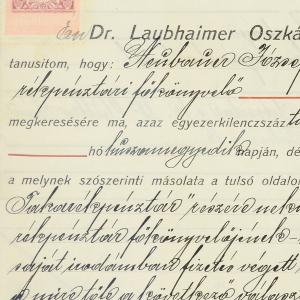 Én Dr. Laubhaimer Oszká
tanusitom, hogy: Neubauer Józse
rékpénztári főkönyvelő
megkeresésére ma, azaz egyezerkilenczszáz ti
hó huszonnegyedik napján, dé
a melynek szószerinti másolata a tulsó oldalo
Takarékpénztár" részére
rékpénztár főkönyvelőjének
saját irodámban fizetés végett
a mire tőle a következő válasz